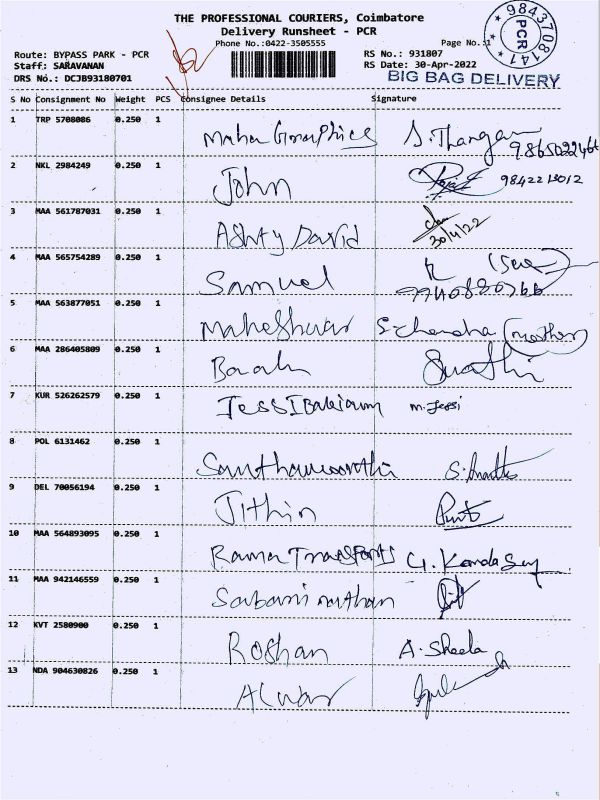 THE PROFESSIONAL COURIERS, Coimbatore
Delivery Runsheet - PCR
Phone No.:0422-3505555
Page No.:1
Route: BYPASS PARK - PCR
RS No.: 931807
Staff: SARAVANAN
RS Date: 30-Apr-2022
DRS No.: DCJB93180701
BIG BAG DELIVERY
9843708141
PCR
S No Consignment No Weight PCS Consignee Details Signature
1 TRP 5708086 0.250 1 Maha Graphics S. Thangam
2 NKL 2984249 0.250 1 John
3 MAA 561787031 0.250 1 Ashty David 30/4/22
4 MAA 565754289 0.250 1 Samuel
5 MAA 563877051 0.250 1 Maheshwar S. chandra (mother)
6 MAA 286405809 0.250 1 Swathi
7 KUR 526262579 0.250 1 M. Jessi
8 POL 6131462 0.250 1
9 DEL 70056194 0.250 1 Jithin
10 MAA 564893095 0.250 1 Rama Transports G. Kandasamy
11 MAA 942146559 0.250 1
12 KVT 2580900 0.250 1 Roshan A. Sheela
13 NDA 904630826 0.250 1 Alwar